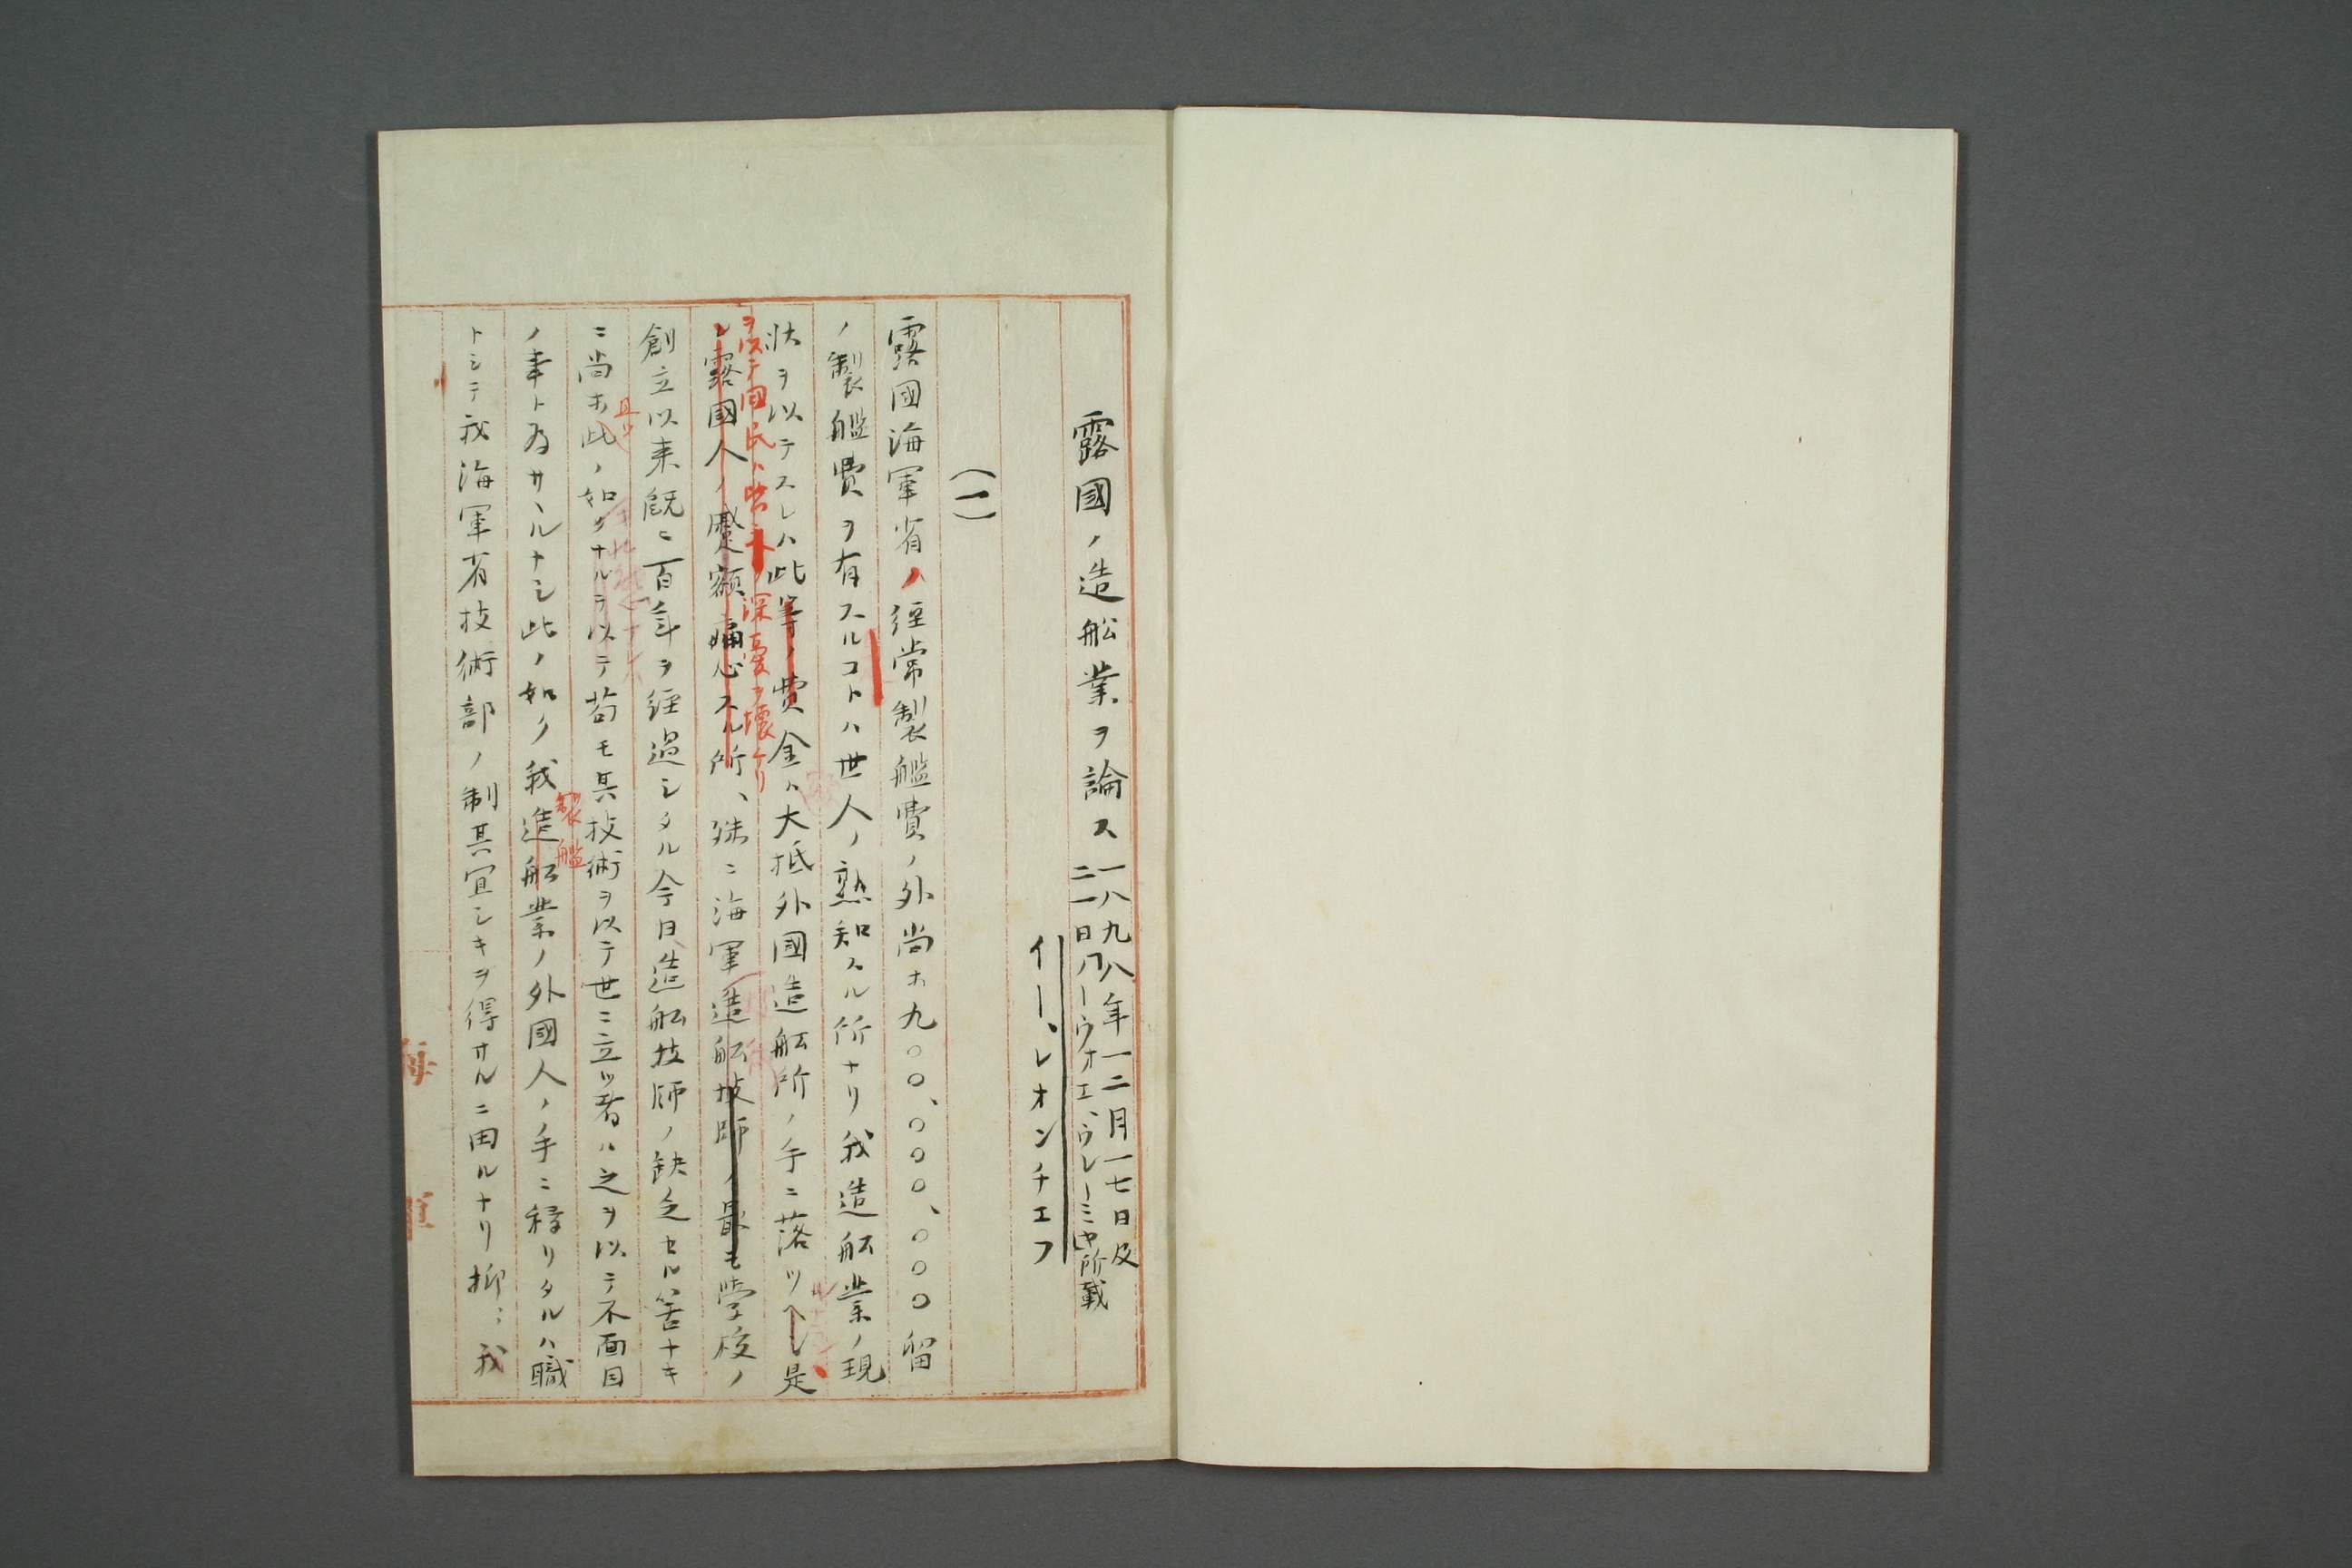 露國ノ造舩業ヲ論ス
一八九八年一二月一七日及
二一日ノーウォエ、ウレーミヤ所載
イー、レオンチエフ
(一)
露國海軍省ノ経常製艦費ノ外尚ホ九〇〇、〇〇〇、〇〇〇留
ノ製艦費ヲ有スルコトハ世人ノ熟知スル所ナリ我造舩業ノ現
狀ヲ以テスレハ此等ノ費金ハ大抵外國造舩所ノ手ニ落ツヘシ是
ヲ以テ國民ハ
深憂ヲ壞ケリ
レ露國人ノ蹙額痛心スル所、殊ニ海軍造舩技師ノ最モ学校ノ
創立以来既ニ百年ヲ経過シタル今日造舩技師ノ缺乏セル筈ナキ
且ツ
ニ尚ホ此ノ如クナルヲ以テ苟モ其技術ヲ以テ世ニ立ツ者ハ之ヲ以テ不面目
製艦
ノ事ト為サヽルナシ此ノ如ク我造舩業ノ外國人ノ手ニ移リタルハ職
トシテ我海軍省技術部ノ制其宜シキヲ得サルニ由ルナリ抑〻我
海軍